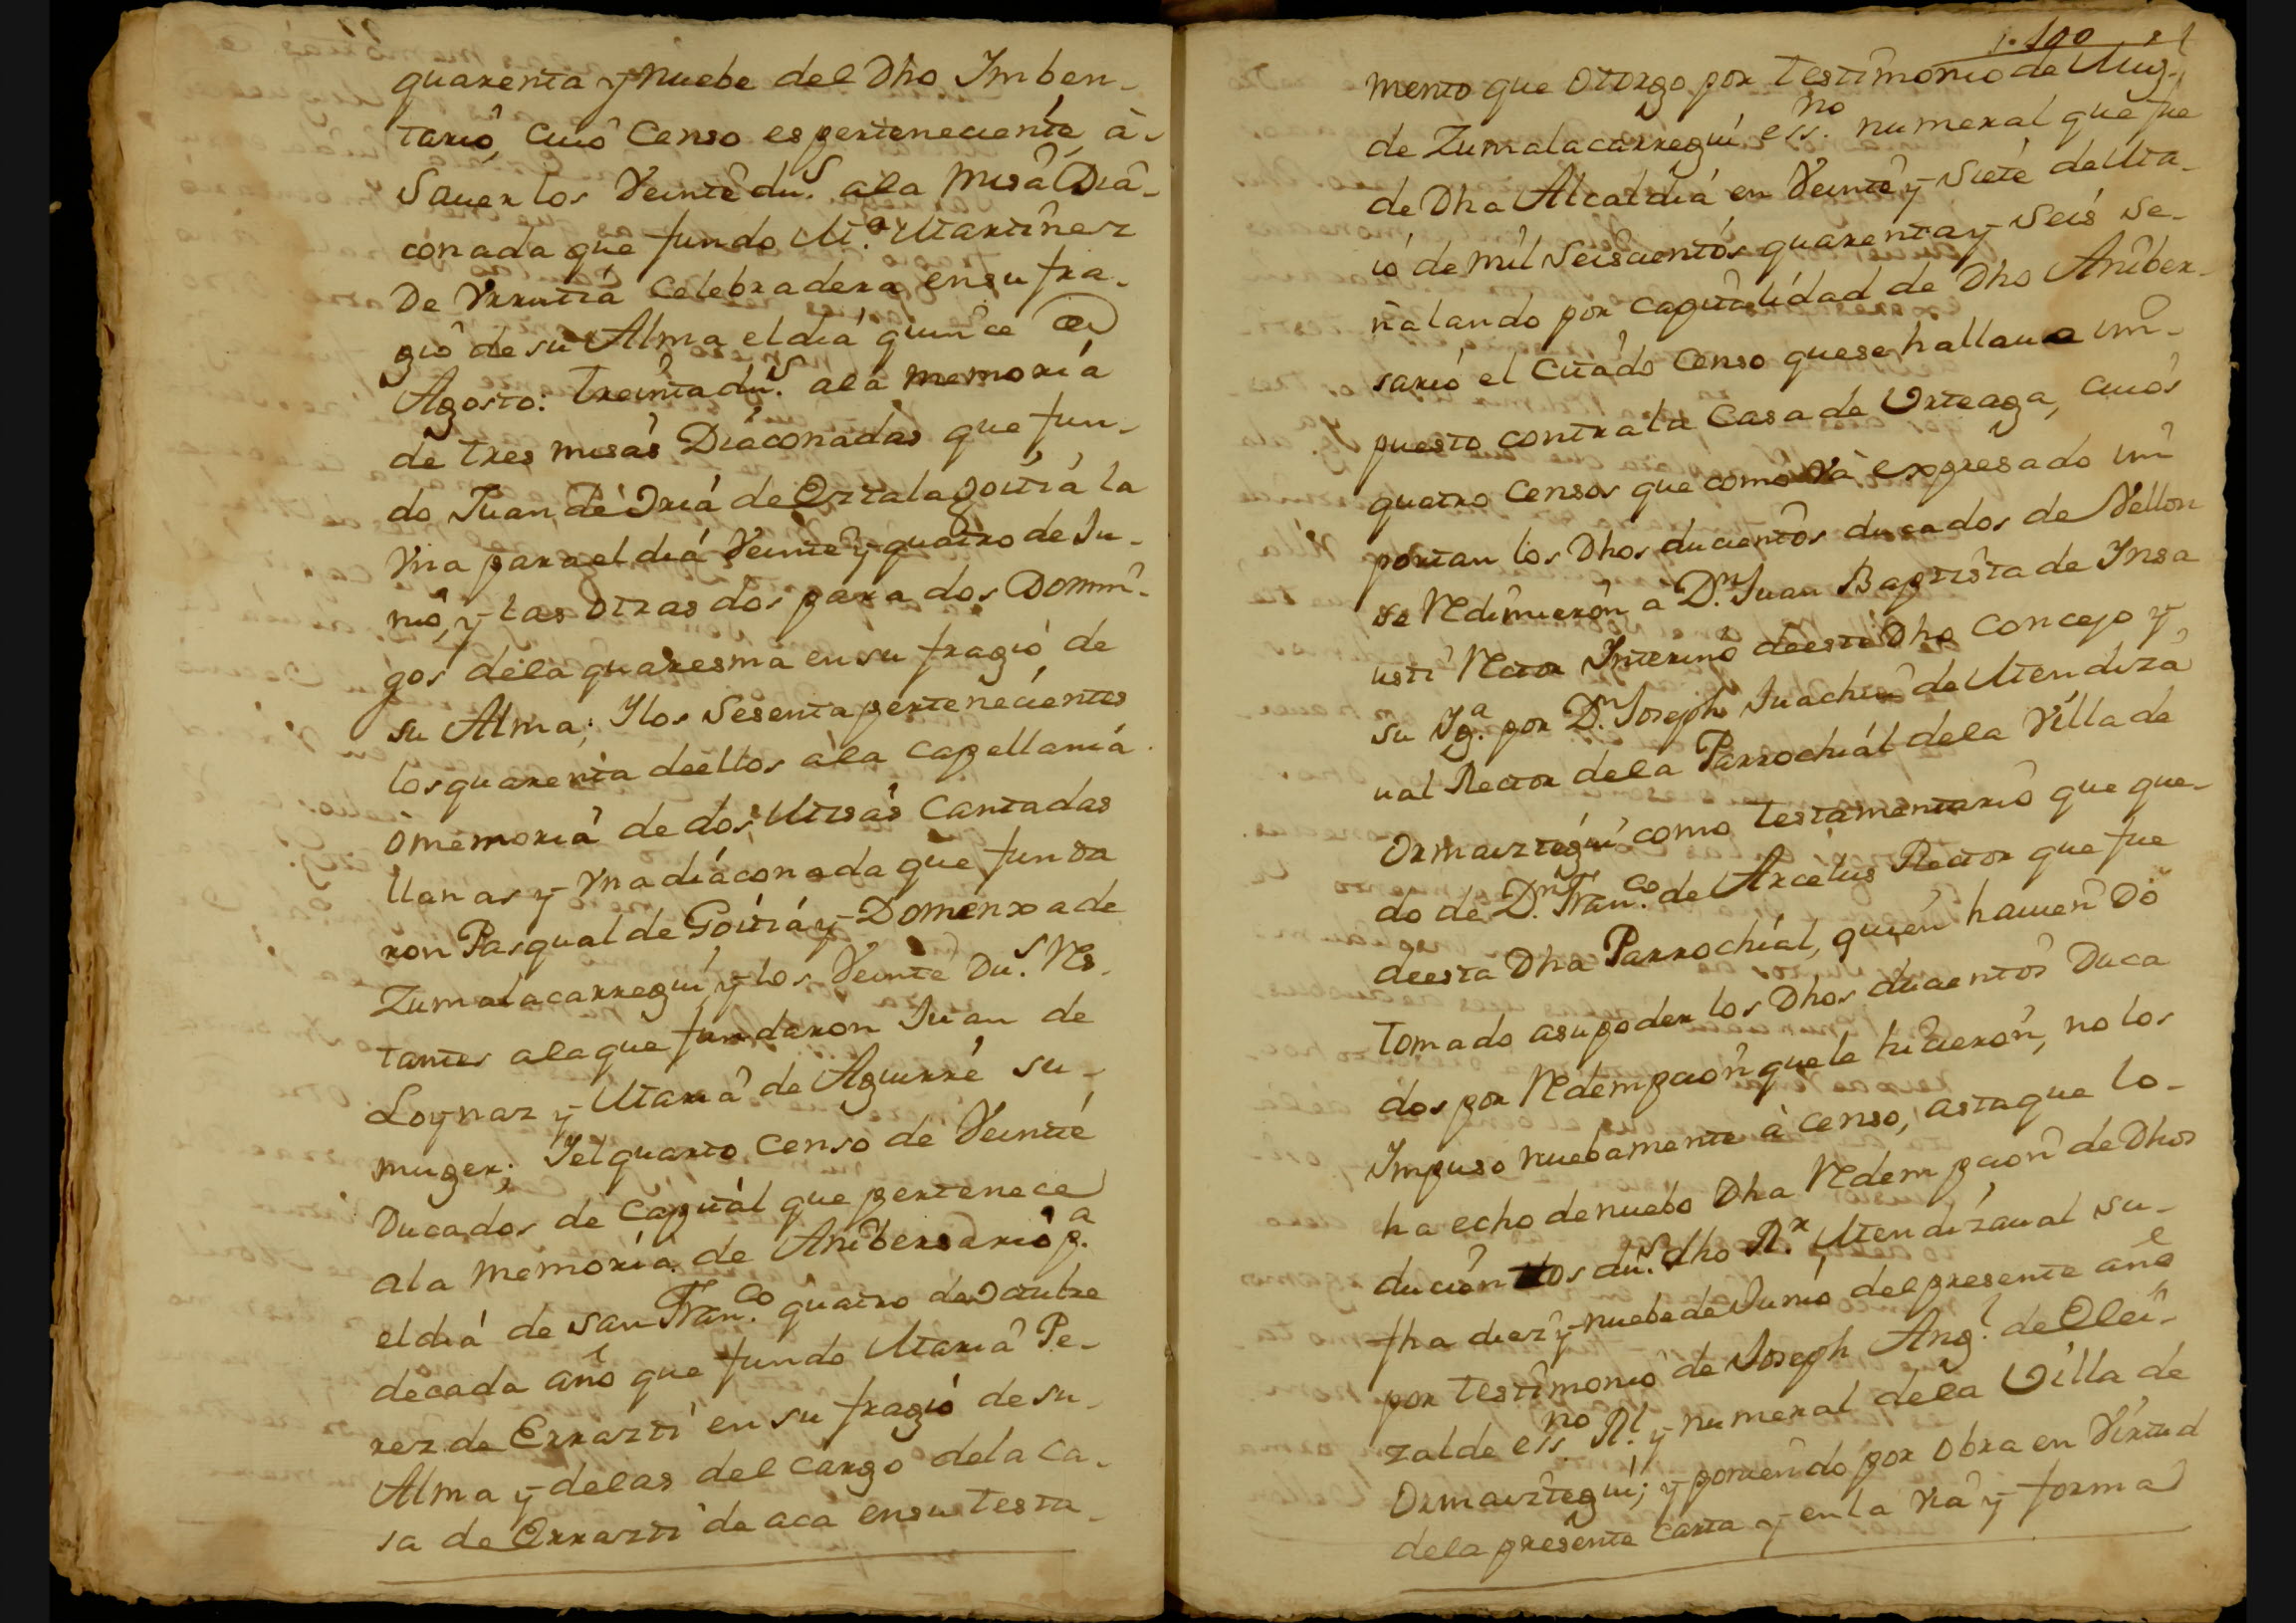 quarenta y nuebe del Dho Imben-
tario, cuio Censo es perteneciente, à-
Sauer los Veinte du.s ala Misa Dia-
conada que fundo M.a Martinez
De Vrrutia Celebradera en su fra-
gio de su Alma el dia quince de
Agosto: treinta du.s ala memoria
de tres misas Diaconadas que fun-
do Juan de Oria de Oztalagoitia la
Vna para el dia Veinte y quatro de Ju-
nio, y las otras dos para dos Domin-
gos dela quaresma en su fragio de
su Alma; Y los Sesenta pertenecientes
los quarenta deellos àla Capellania
ò memoria de dos Misas Cantadas
llanas y Vna diaconada que funda
ron Pasqual de Goitia y Domenxa de
Zumalacarregui y los Veinte Du.s Rs-
tantes ala que fundaron Juan de
Loynaz y Maria de Aguirre su-
muger; Y el quarto Censo de Veinte
Ducados de Capital que pertenece
ala memoria de Anibersario p.a
el dia de san Fran.co quatro de Octubre
de cada año que fundo Maria Pe-
rez de Errazti en su fragio de su-
Alma y delas del cargo dela Ca-
sa de Errazti de aca en su testa-
1.100
mento que otorgo por testimonio de Mig.l
de Zumalacarregui ess.no numeral que fue
de Dha Alcaldia en Veinte y Siete de Ma-
io de mil Seiscientos quarenta y Seis Se-
ñalando por Capitalidad de Dho Aniber-
sario el Citado Censo que se hallaua im-
puesto contra la Casa de Urteaga, cuios
quatro Censos que como Va expresado im
portan los Dhos ducientos ducados de Vellon
se Redimieron a D.n Juan Baptista de Insa
usti Rector Interino deeste Dho Concejo y
su Yg.a por D.n Joseph Juachin de Mendiza
ual Rector dela Parrochial dela Villa de
Ormaiztegui como testamentario que que-
do de D.n Fran.co de Arcelus Rector que fue
deesta Dha Parrochial, quien hauiendo
tomado asu poder los Dhos ducientos Duca
dos por Redempcion que le hicieron, no los
Impuso nuebamente à Censo, asta que lo-
ha echo de nuebo Dha Redempcion de Dhos
ducientos du.s dho R.r Mendizaual su-
fha diez y nuebe de Junio del presente año
por testimonio de Joseph Ang.l de Olei-
zalde ess.no R.l y numeral dela Villa de
Ormaiztegui; y poniendo por obra en Virtud
dela presente Carta y en la Via y forma